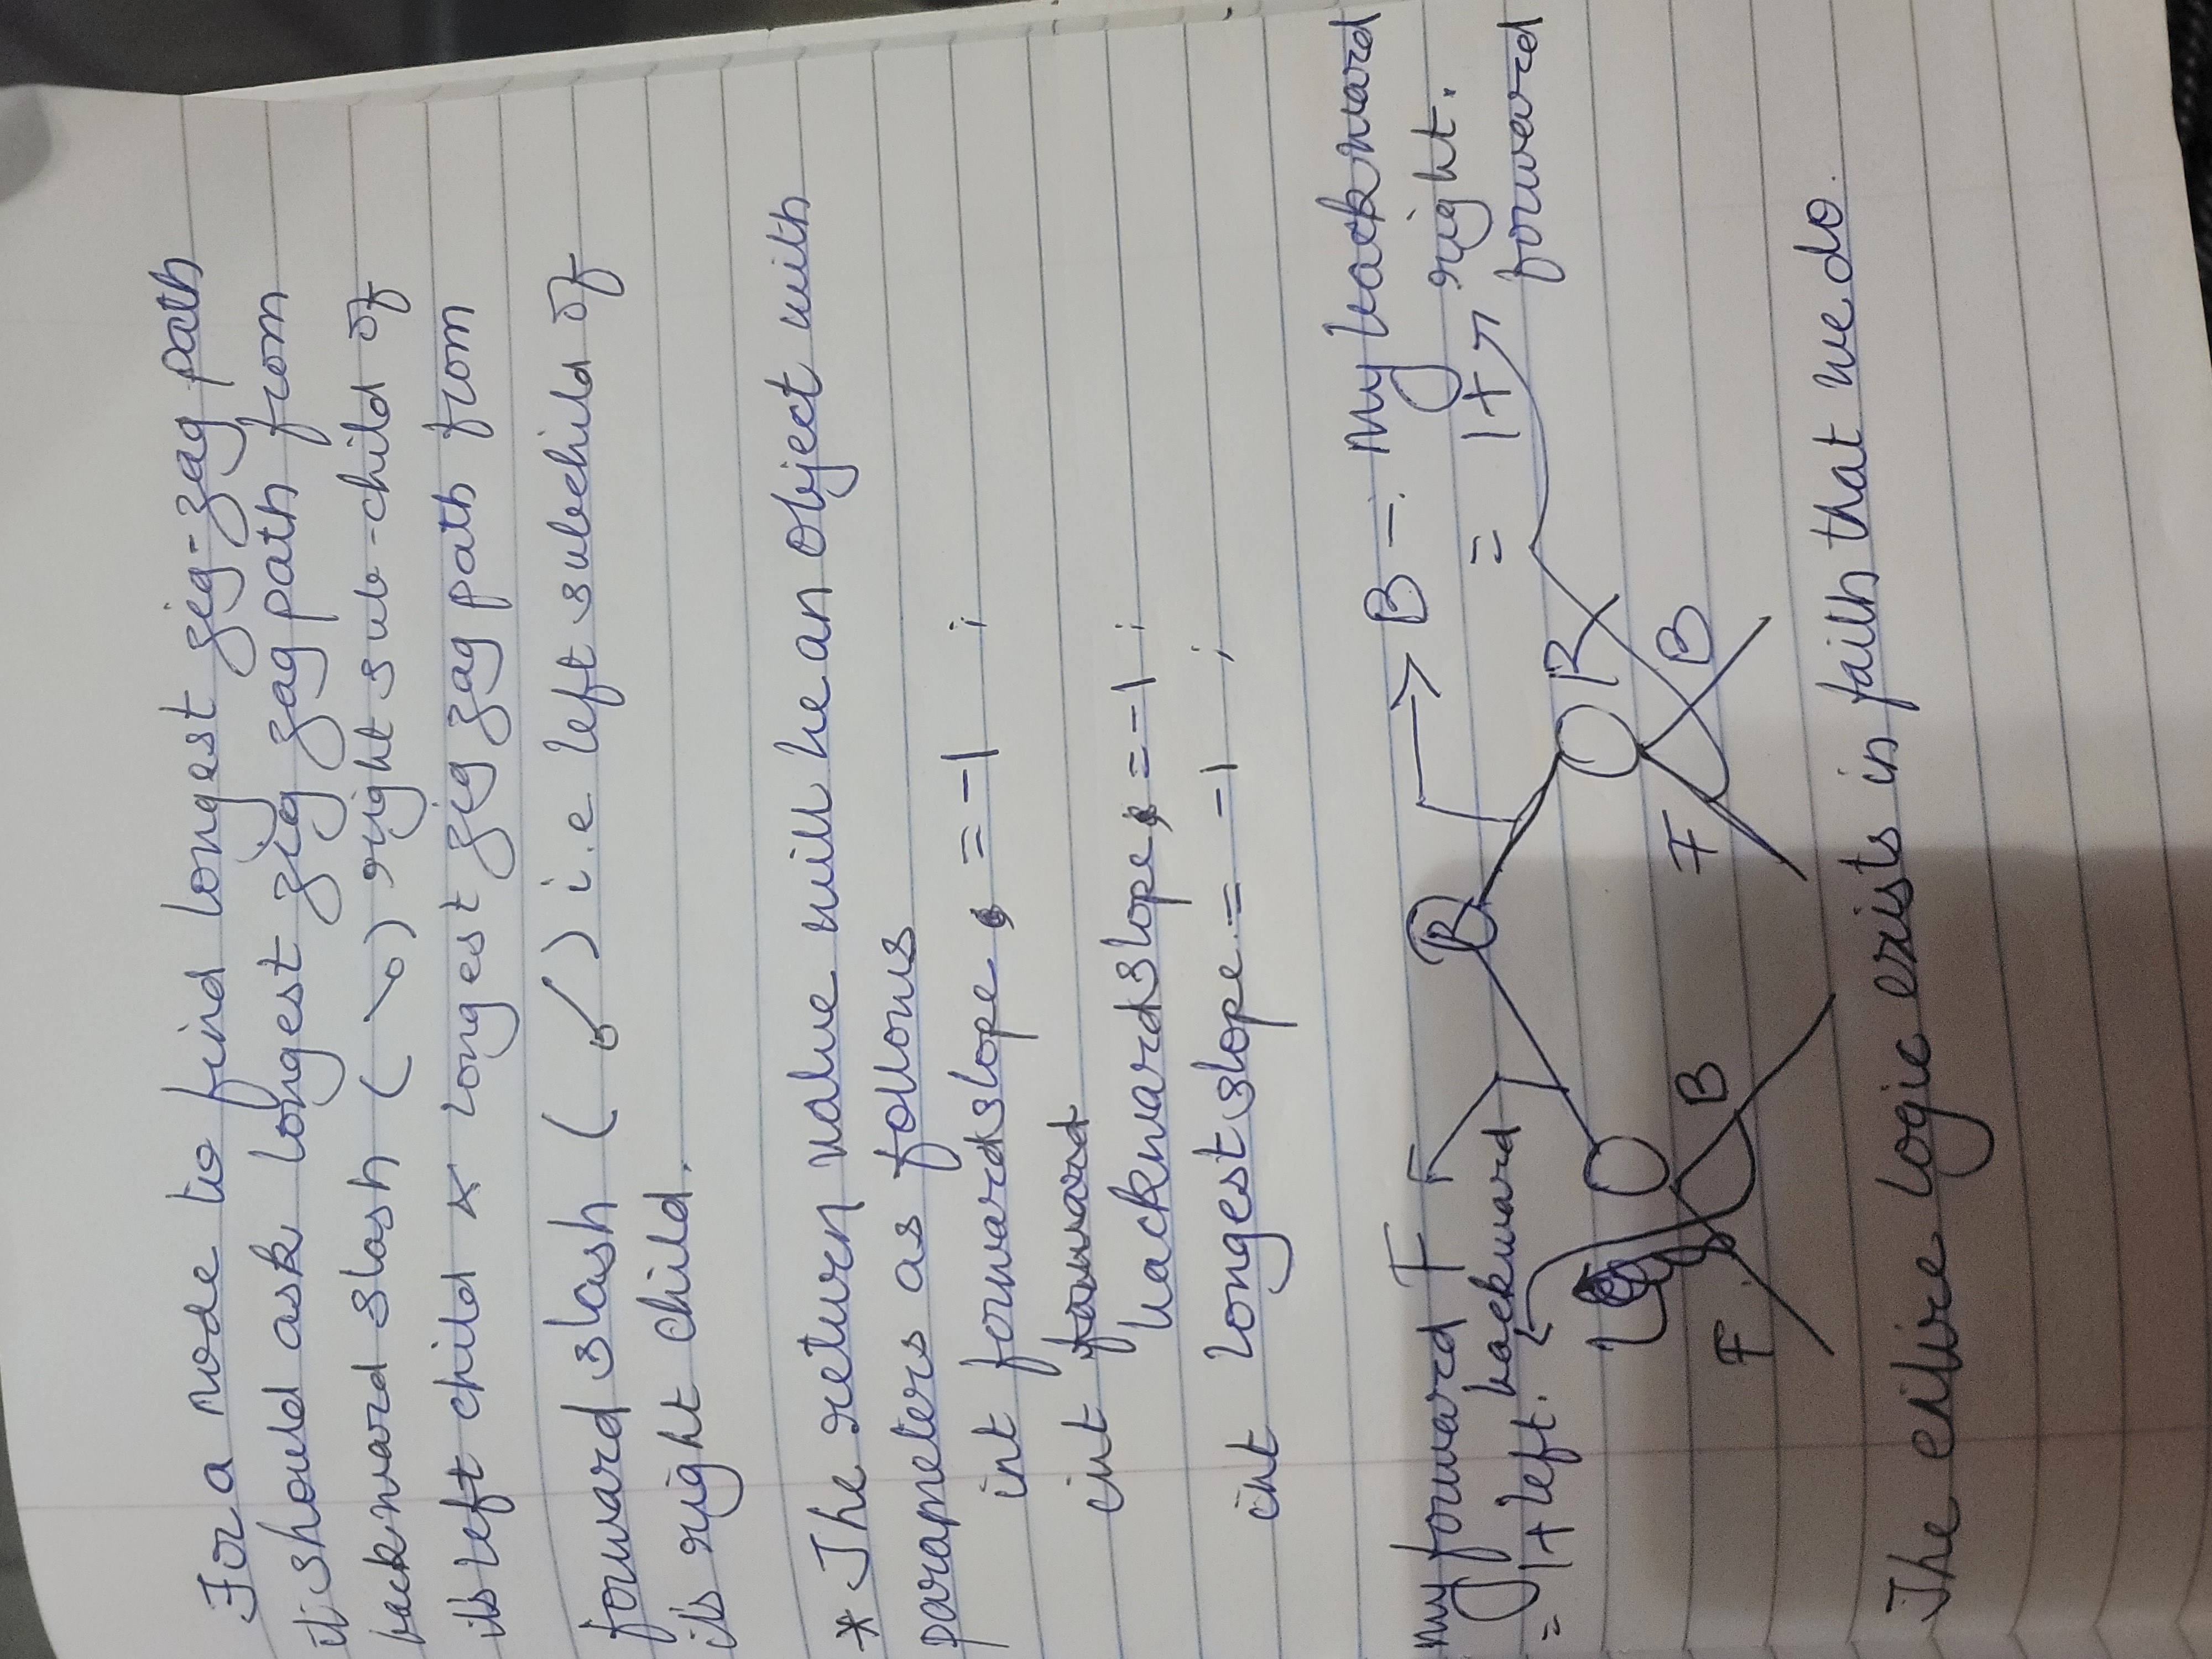 For a node to find longest zig-zag path
it should ask longest zig zag path from
backward slash ( \o ) right sub-child of
it's left child & longest zig zag path from
forward slash ( o/ ) i.e left subchild of
it's right child.
* The return value will be an object with
parameters as follows
int forwardslope = -1 ;
int forward
backwardslope = -1 ;
int longestslope = -1 ;
My forward F
R
B -: My backward
= 1+ left. backward
= 1+ right.
forward
L
R
F
B
F
B
The entire logic exists in faith that we do.